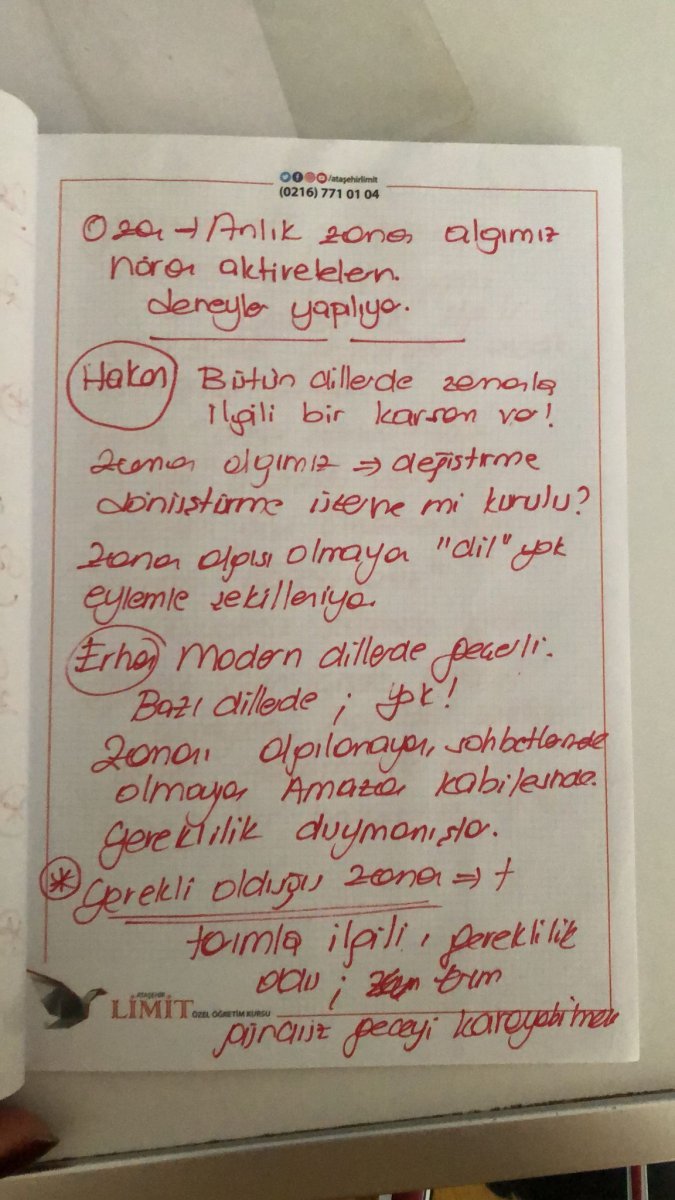 /ataşehirlimit
(0216) 771 01 04
Ozan → Anlık zaman algımız
nöron aktiviteleri.
deneyler yapılıyor.
Hakan Bütün dillerde zamanla
ilgili bir kavram var!
Zaman algımız ⇒ değiştirme
dönüştürme üzerine mi kurulu?
Zaman algısı olmayan "dil" yok
eylemle şekilleniyor.
Erhan Modern dillerde geçerli.
Bazı dillerde ; yok!
Zamanı algılamayan, sohbetlerinde
olmayan Amazon kabilesinde.
Gereklilik duymamışlar.
* Gerekli olduğu zaman ⇒ +
tarımla ilgili, gereklilik
oldu ;
gündüz geceyi
ATAŞEHİR
LİMİT ÖZEL ÖĞRETİM KURSU